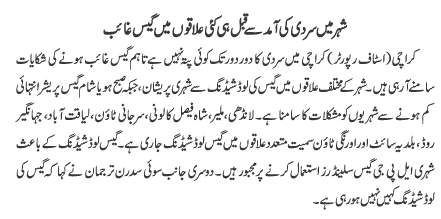 شہر میں سردی کی آمد سے قبل ہی کئی علاقوں میں گیس غائب
کراچی (اسٹاف رپورٹر) کراچی میں سردی کا دور دور تک کوئی پتہ نہیں ہے تاہم گیس غائب ہونے کی شکایات
سامنے آرہی ہیں۔ شہر کے مختلف علاقوں میں گیس کی لوڈشیڈنگ سے شہری پریشان، جبکہ صبح ہو یا شام گیس پریشر انتہائی
کم ہونے سے شہریوں کو مشکلات کا سامنا ہے۔ لانڈھی، ملیر، شاہ فیصل کالونی، سرجانی ٹاؤن، لیاقت آباد، جہانگیر
روڈ، بلدیہ سائٹ اور اورنگی ٹاؤن سمیت متعدد علاقوں میں گیس لوڈشیڈنگ جاری ہے۔ گیس لوڈشیڈنگ کے باعث
شہری ایل پی جی گیس سلینڈرز استعمال کرنے پر مجبور ہیں۔ دوسری جانب سوئی سدرن ترجمان نے کہا کہ گیس کی
لوڈشیڈنگ کہیں نہیں ہو رہی ہے۔